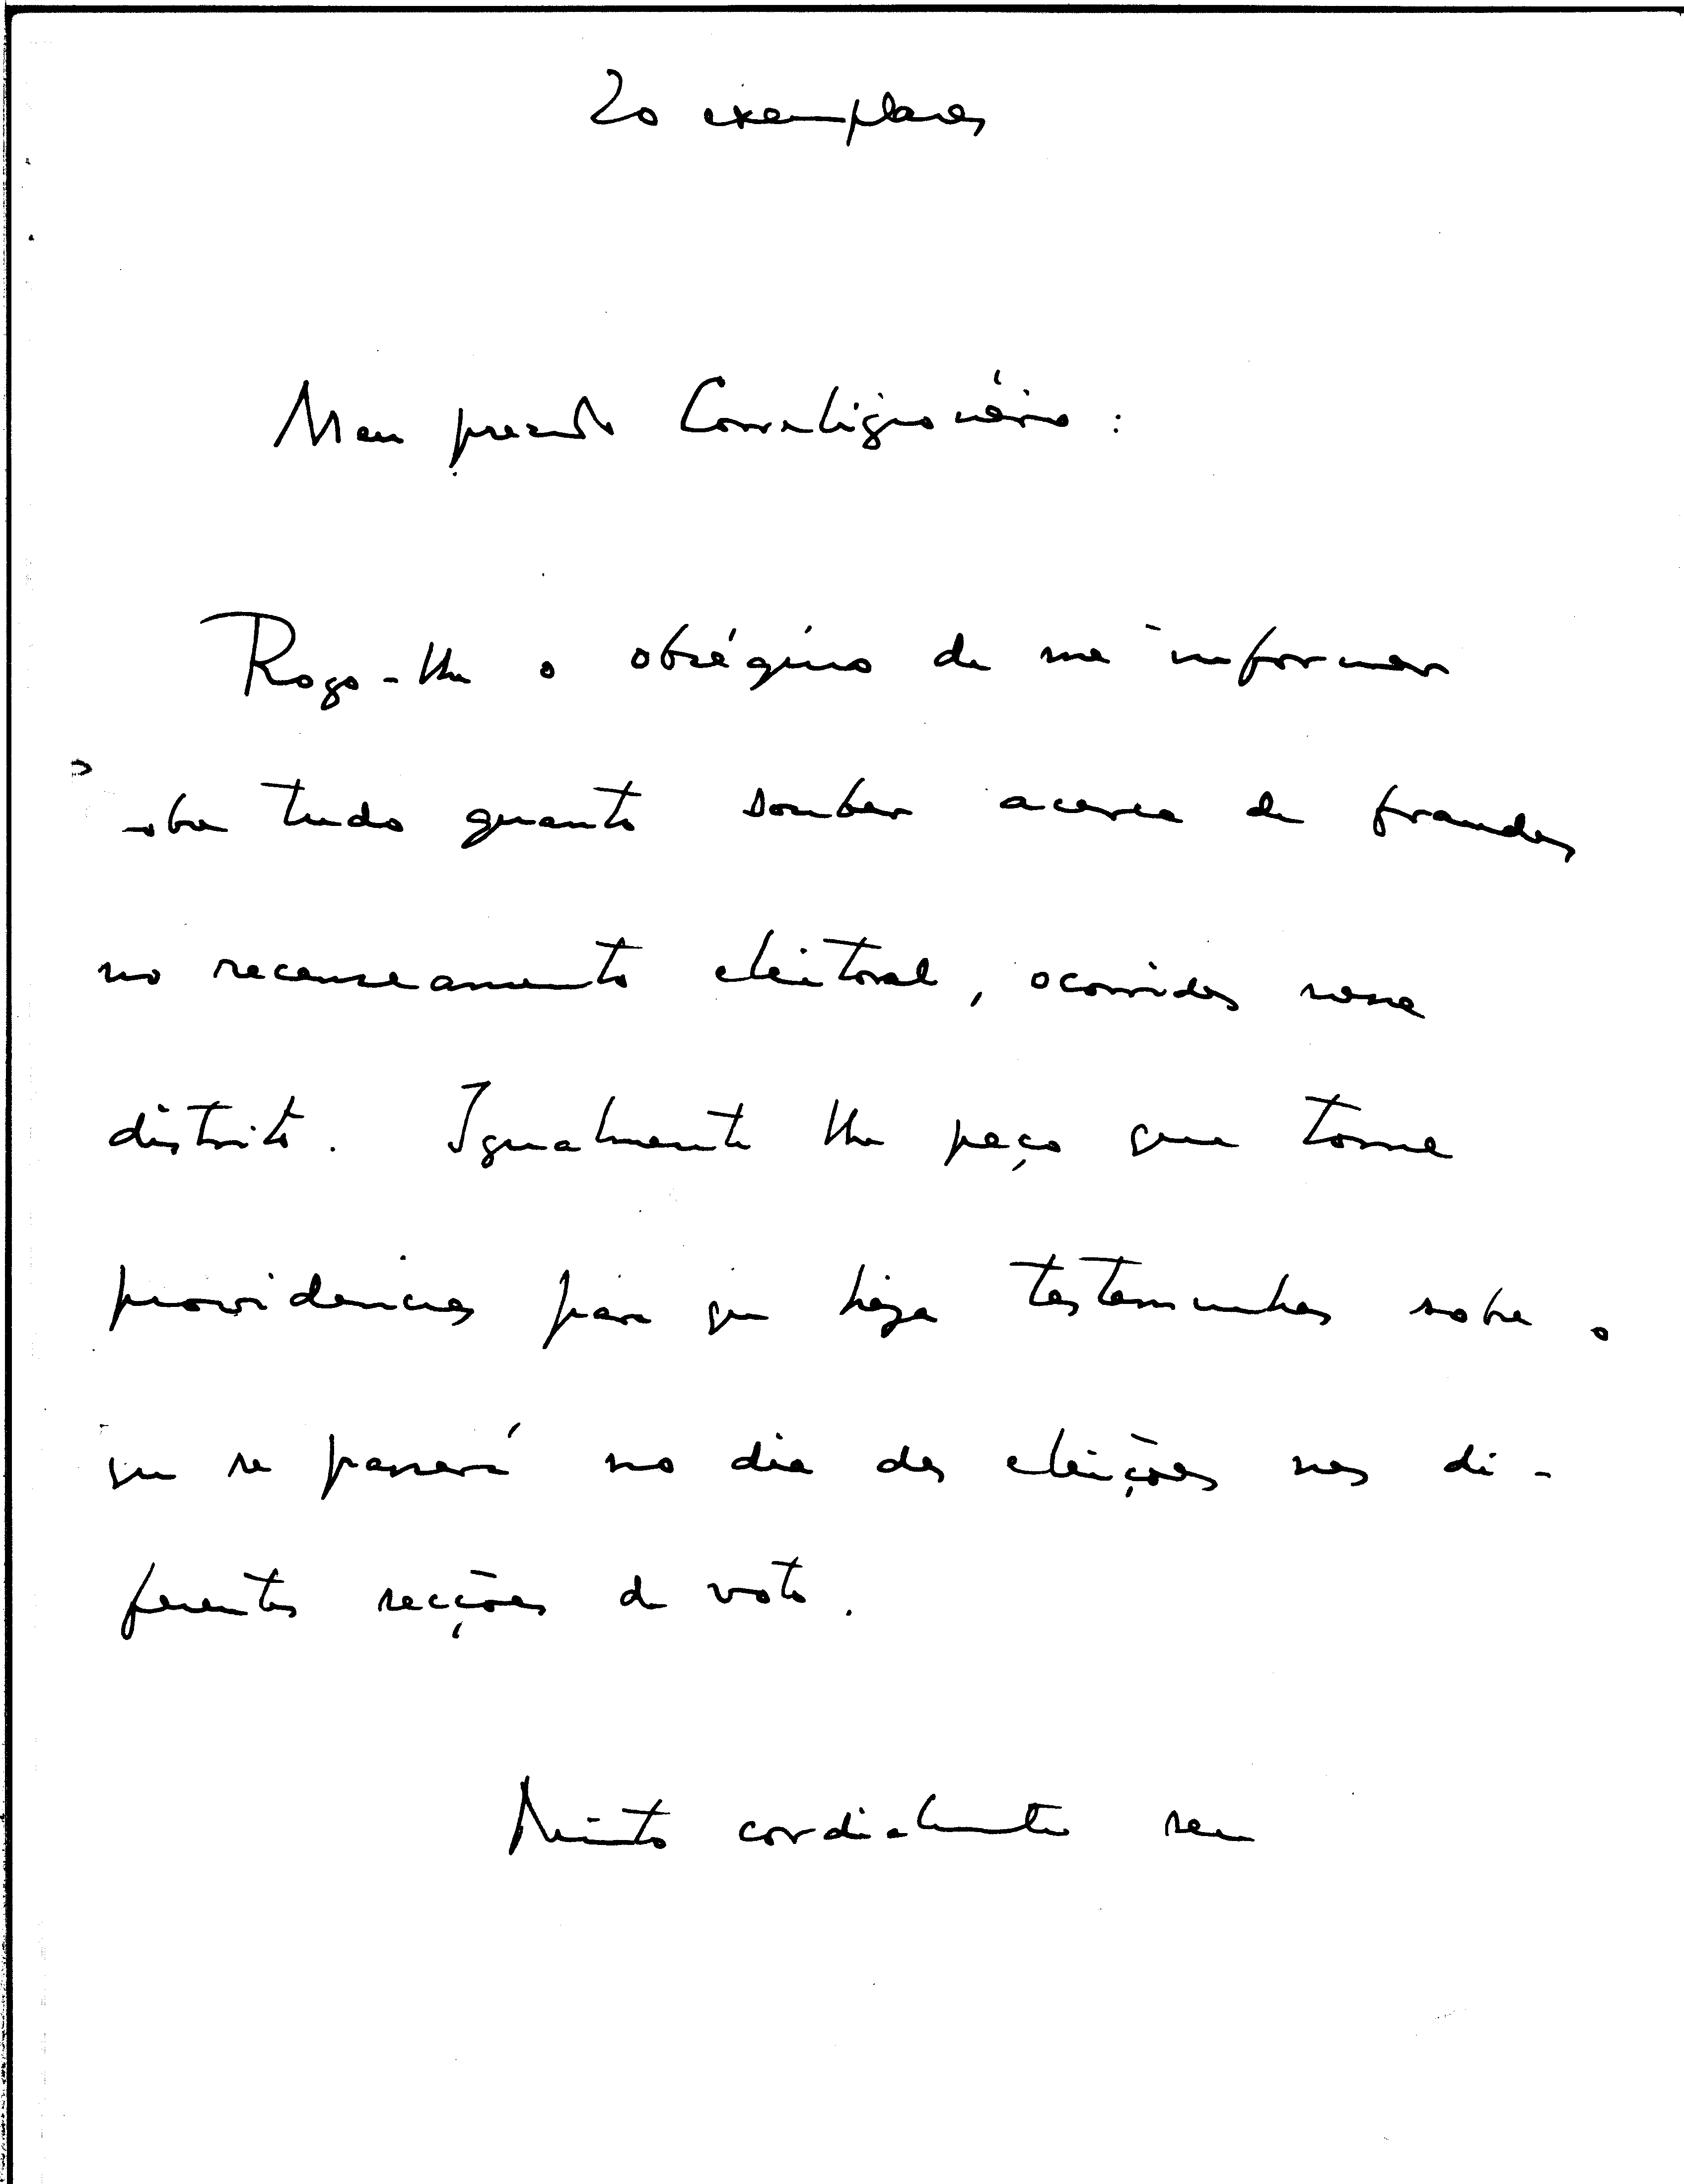 20 exemplares
Meu prezado Correligionário:
Rogo-lhe o obséquio de me informar
sobre tudo quanto souber acerca de fraudes
no recenseamento eleitoral, ocorridas nesse
distrito. Igualmente lhe peço que tome
providencias para que haja testemunhas sobre o
que se passará no dia das eleições nas di-
ferentes secções de voto.
Muito cordialmente seu